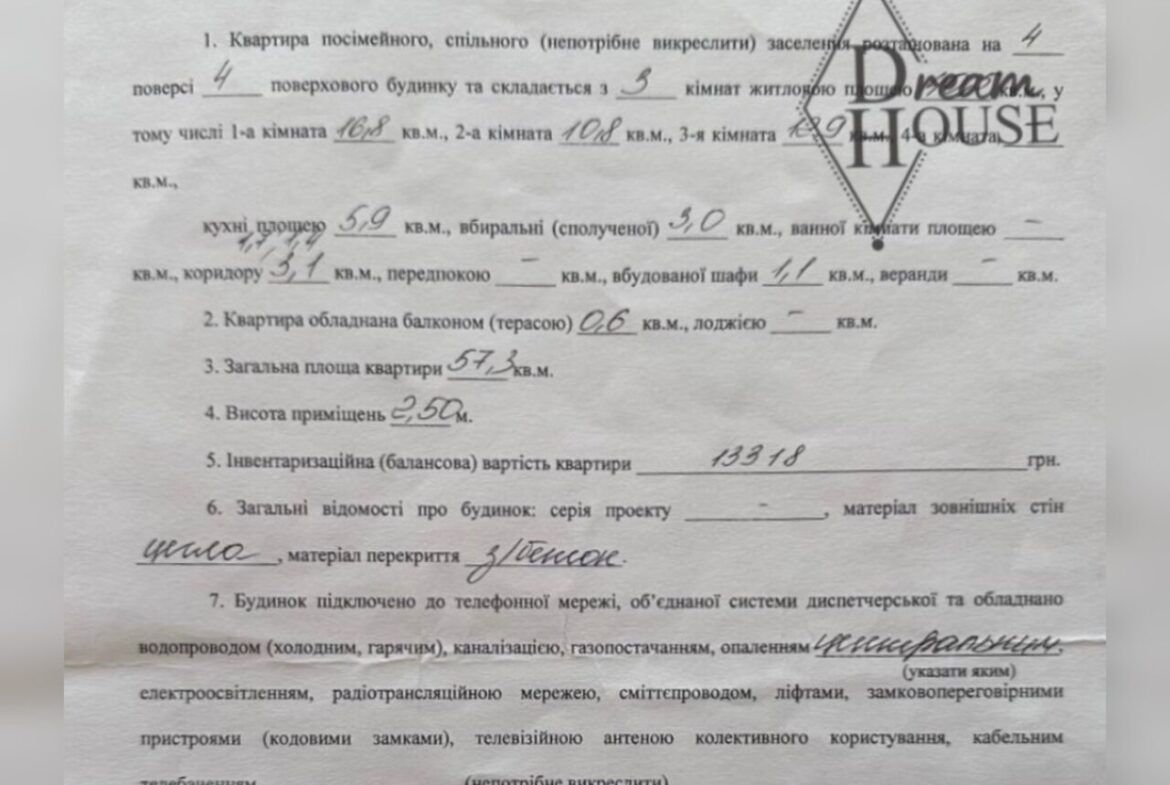 1. Квартира посімейного, спільного (непотрібне викреслити) заселення розташована на 4
поверсі 4 поверхового будинку та складається з 3 кімнат житловою площею кв.м., у
Dream
тому числі 1-а кімната 16,8 кв.м., 2-а кімната 10,8 кв.м., 3-я кімната кв.м., 4-а кімната
HOUSE
кв.м.,
кухні площею 5,9 кв.м., вбиральні (сполученої) 3,0 кв.м., ванної кімнати площею -
1,7, 1,4
кв.м., коридору 3,1 кв.м., передпокою - кв.м., вбудованої шафи 1,1 кв.м., веранди - кв.м.
2. Квартира обладнана балконом (терасою) 0,6 кв.м., лоджією - кв.м.
3. Загальна площа квартири 57,3 кв.м.
4. Висота приміщень 2,50 м.
5. Інвентаризаційна (балансова) вартість квартири 13318 грн.
6. Загальні відомості про будинок: серія проекту -, матеріал зовнішніх стін
цегла, матеріал перекриття з/бетон.
7. Будинок підключено до телефонної мережі, об'єднаної системи диспетчерської та обладнано
водопроводом (холодним, гарячим), каналізацією, газопостачанням, опаленням центральним,
(указати яким)
електроосвітленням, радіотрансляційною мережею, сміттєпроводом, ліфтами, замковопереговірними
пристроями (кодовими замками), телевізійною антеною колективного користування, кабельним
телебаченням (непотрібне викреслити)